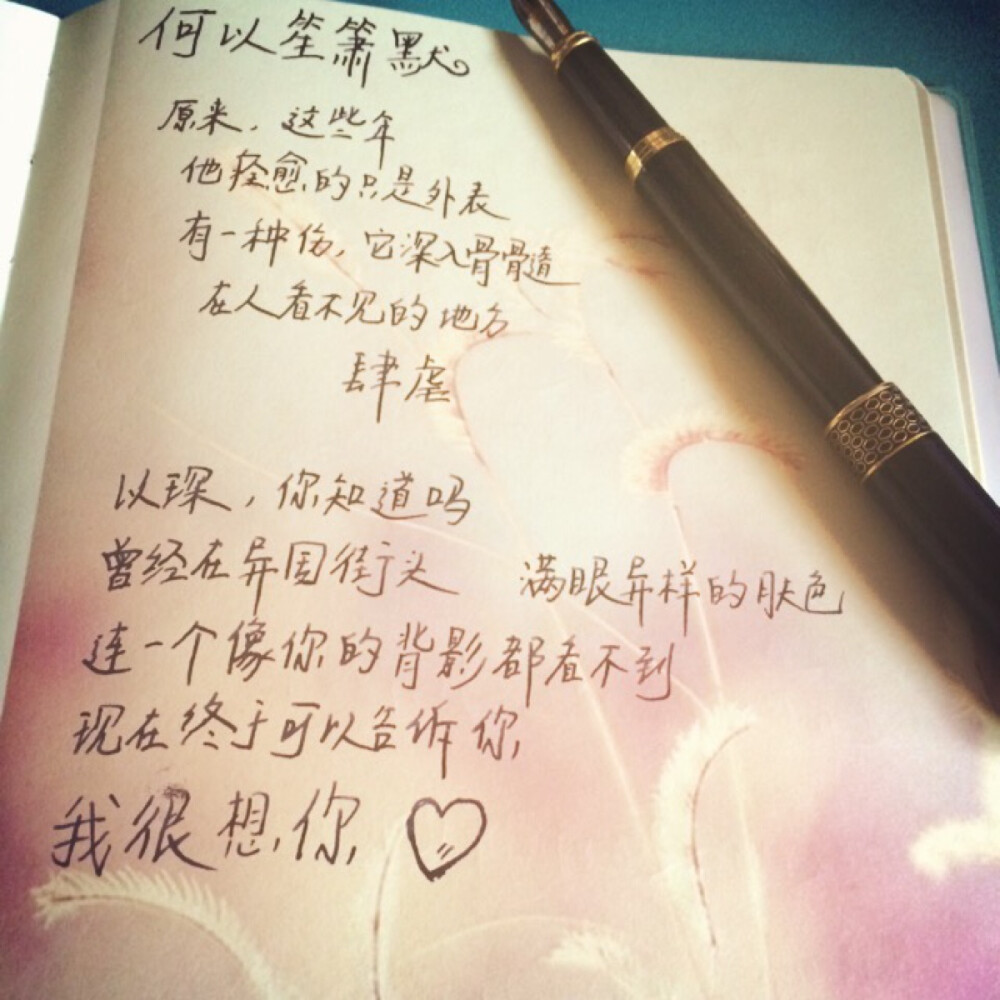 何以笙箫默
原来，这些年
他痊愈的只是外表
有一种伤，它深入骨骨髓
在人看不见的地方
肆虐
以琛，你知道吗
曾经在异国街头 满眼异样的肤色
连一个像你的背影都看不到
现在终于可以告诉你
我很想你